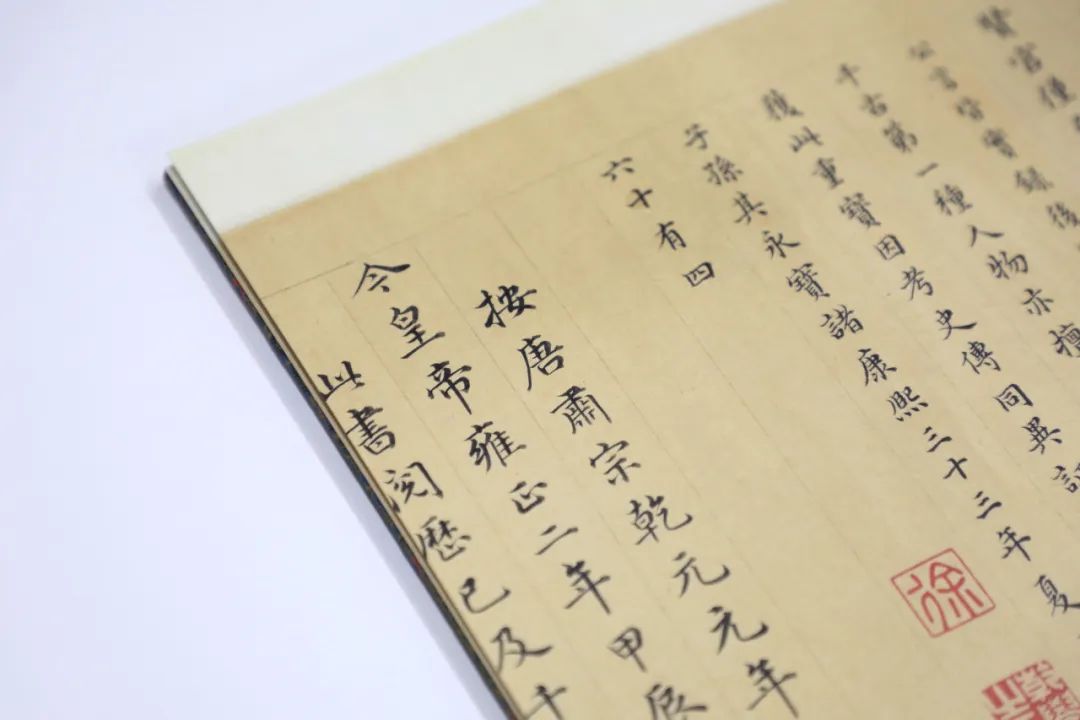 賢宦僅
公言皆實錄後
千古第一種人物亦擅
獲此重寶因考史傳同異
子孫其永寶諸康熙三十三年夏
六十有四
徐
按唐肅宗乾元元年
今皇帝雍正二年甲辰
此書閱歷已及千